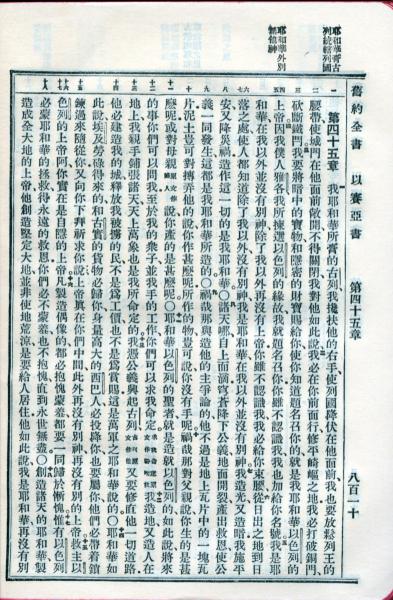 耶和華膏古
列統轄列國
耶和華外別
無他神
舊約全書 以賽亞書 第四十五章 八百一十
第四十五章 我耶和華所膏的古列我攙扶他的右手使列國降伏在他面前我也要放鬆列王的
腰帶使城門在他面前敞開不得關閉我對他如此說我必在你前面行修平崎嶇之地我必打破銅門
砍斷鐵門我要將暗中的寶物和隱密的財寶賜給你使你知道題名召你的就是我耶和華以色列的
上帝因我僕人雅各我所揀選以色列的緣故我就題名召你你雖不認識我我也加給你名號我是耶
和華在我以外並沒有別神除了我以外再沒有上帝你雖不認識我我必給你束腰從日出之地到日
落之處使人都知道除了我以外沒有別神我是耶和華在我以外並沒有別神我造光又造暗我施平
安又降災禍造作這一切的是我耶和華○諸天哪自上而滴穹蒼降下公義地面開裂產出救恩使公
義一同發生這都是我耶和華所造的○禍哉那與造他的主爭論的他不過是地上瓦片中的一塊瓦
片泥土豈可對摶弄他的說你作甚麼呢所作的物豈可說你沒有手呢禍哉那對父親說你生的是甚
麼呢或對母親原文作婦人說你產的是甚麼呢○耶和華以色列的聖者就是造就以色列的如此說將來
的事你們可以問我至於我的眾子並我手的工作你們可以求我命定求我命定原文作吩咐我我造地又造人在
地上我親手鋪張諸天天上萬象也是我所命定的我憑公義興起古列古列原文作他又要修直他一切道路
他必建造我的城釋放我被擄的民不是為工價也不是為賞賜這是萬軍之耶和華說的○耶和華如
此說埃及勞碌得來的和古實的貨物必歸你身量高大的西巴人必投降你也要屬你他們必帶着鎖
鍊過來隨從你又向你下拜祈求你說上帝真在你們中間此外再沒有別神再沒有別的上帝救主以
色列的上帝阿你實在是自隱的上帝凡製造偶像的都必抱愧蒙羞都要一同歸於慚愧惟有以色列
必蒙耶和華的拯救得永遠的救恩你們必不蒙羞也不抱愧直到永世無盡○創造諸天的耶和華製
造成全大地的上帝他創造堅定大地並非使地荒涼是要給人居住他如此說我是耶和華再沒有別